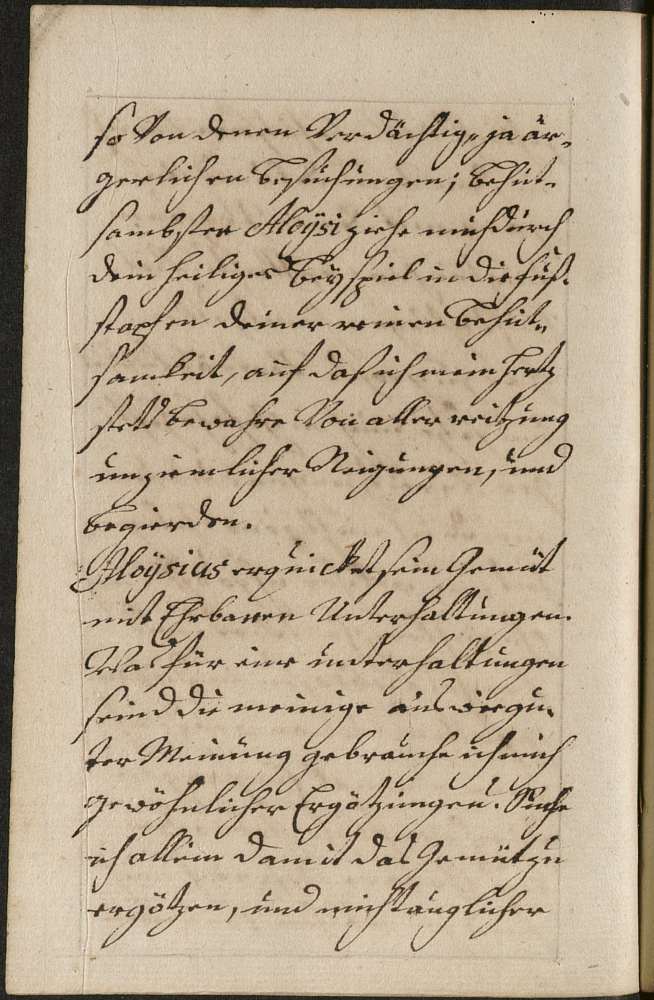 so von denen Verdächtig, ja är-
gerlichen besuchungen; behut-
sambster Aloÿsi ziehe mich durch
dein heiliges beÿspiel in die fuß-
stapfen deiner reinen behut-
samkeit, auf daß ich mein hertz
stets bewahre Von aller reitzung
unziemlicher Neigungen, und
begierden.
Aloÿsius erquicket sein Gemüt
mit Ehrbaren Unterhaltungen.
Was für eine unterhaltungen
seind die meinige aus was gu-
ter Meinung gebrauche ich mich
gewöhnlicher Ergötzungen. Suche
ich allein damit das Gemüt zu
ergötzen, und mich tauglicher